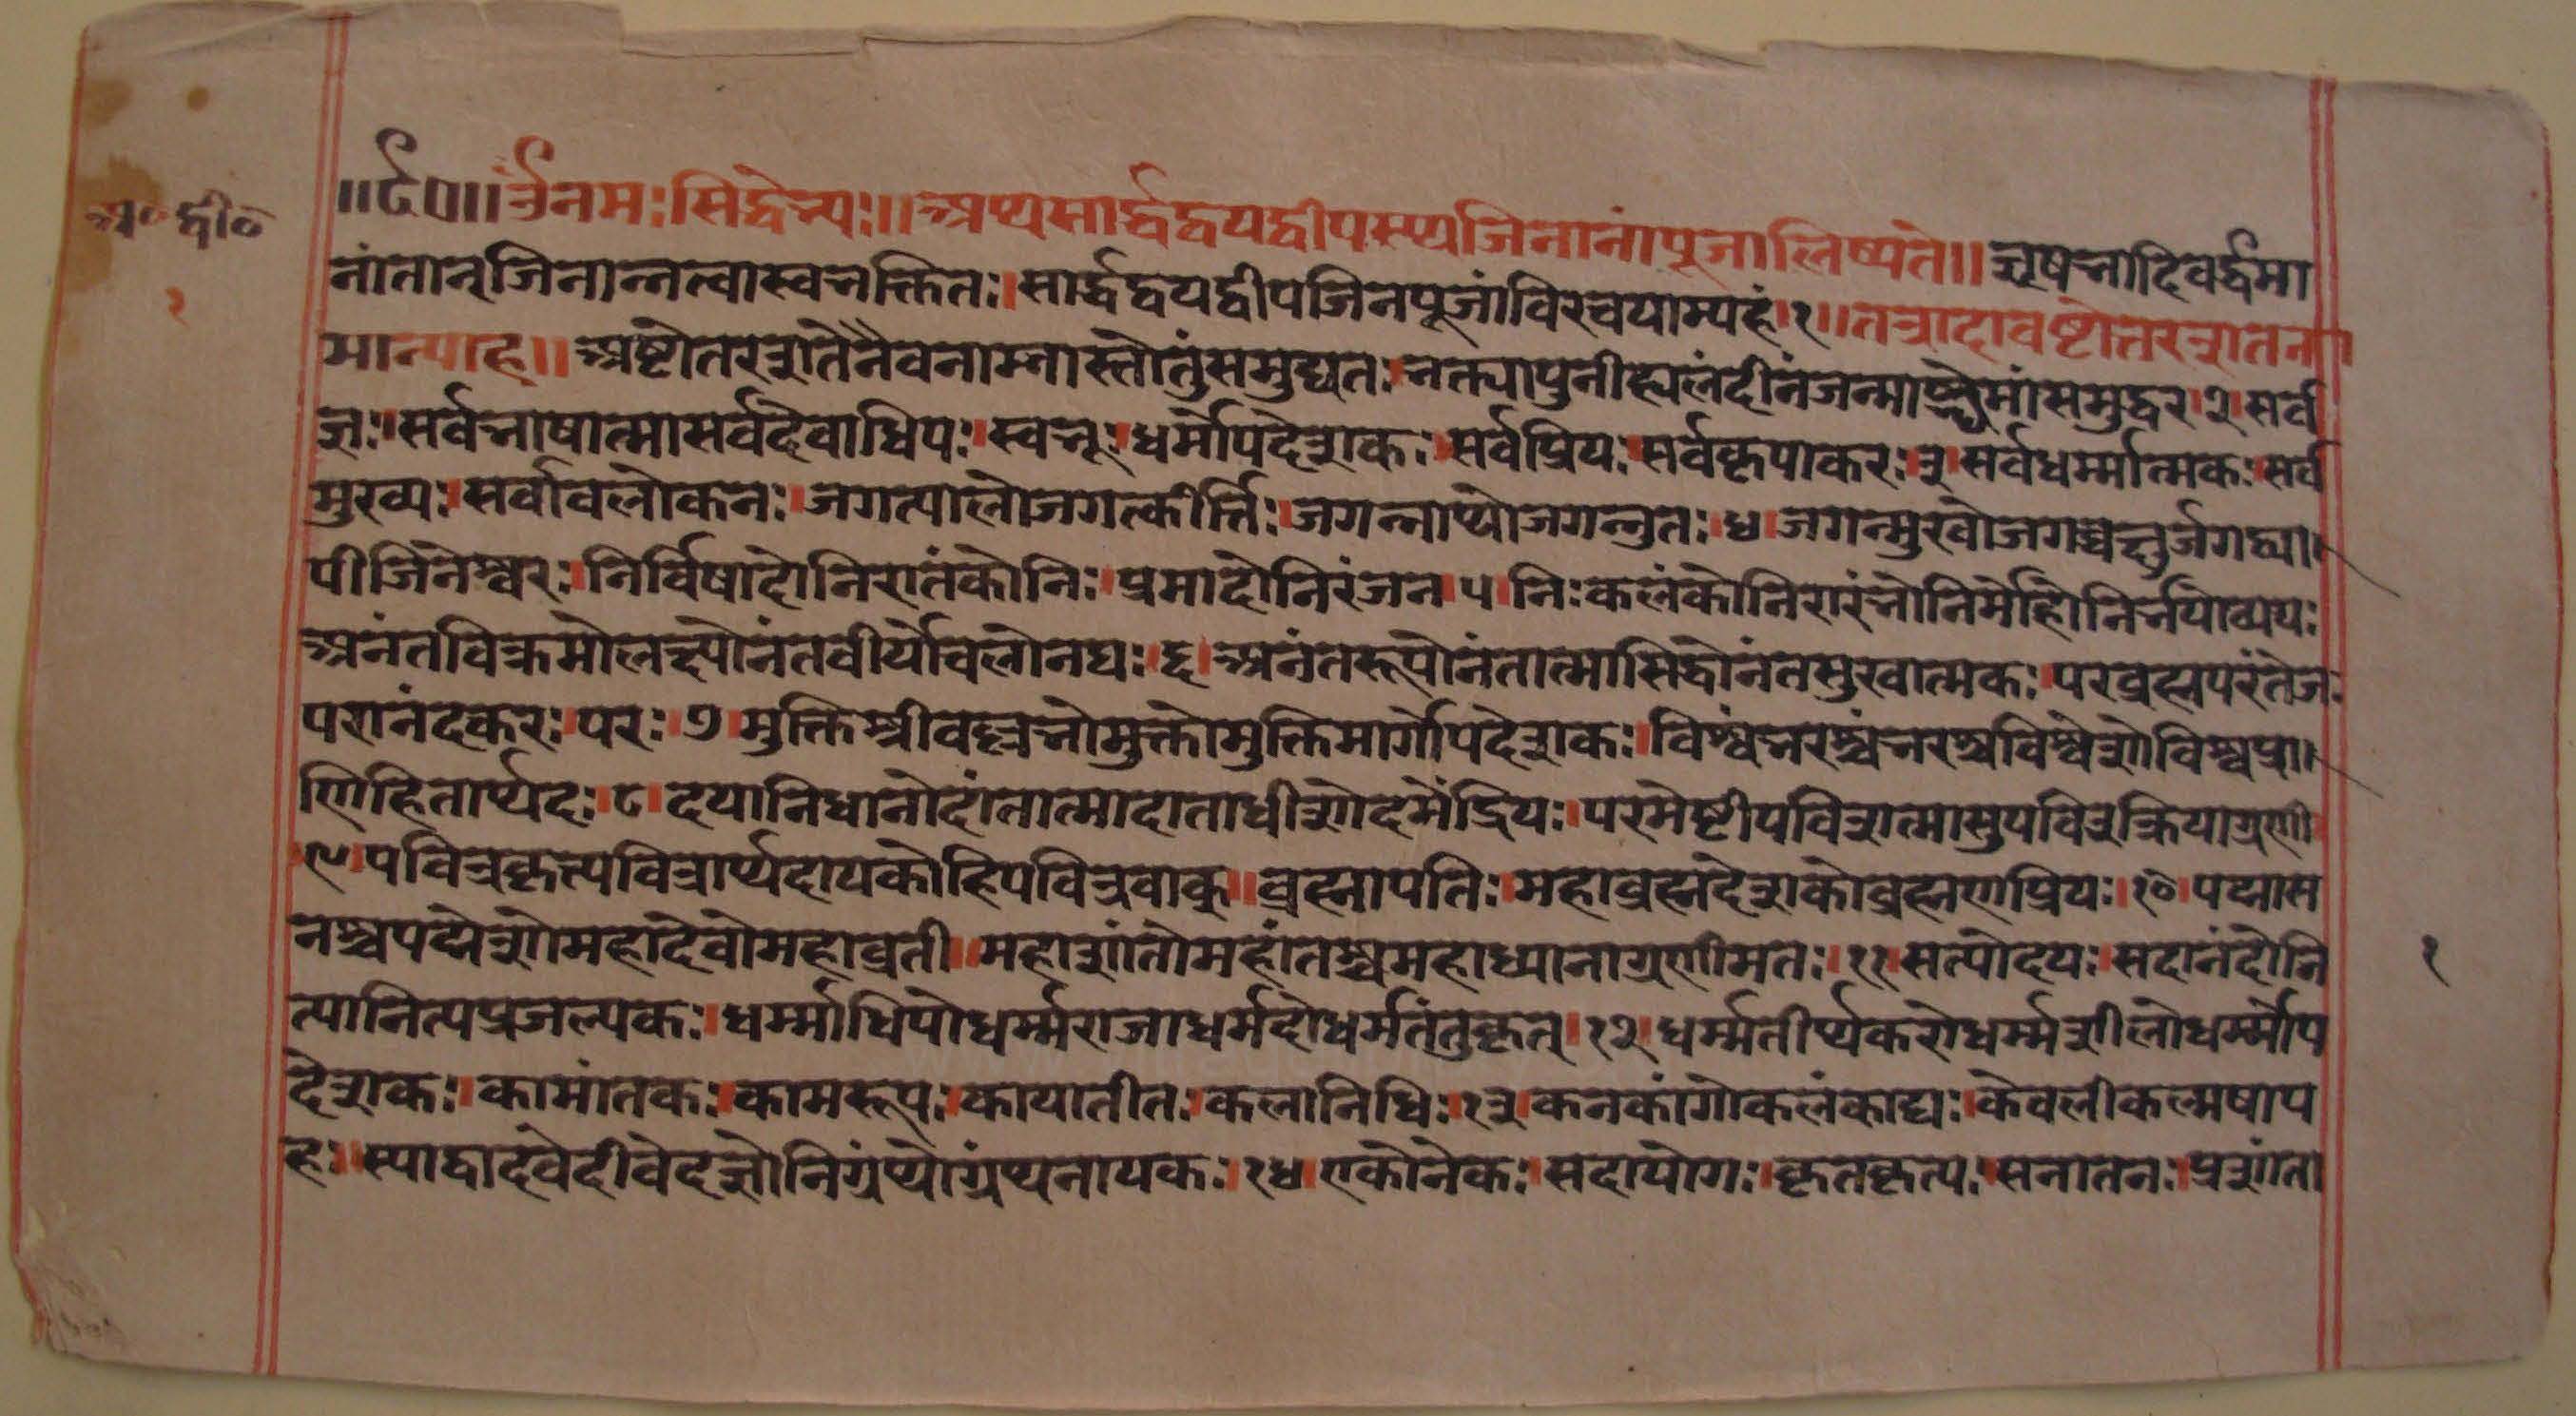 ॥९०॥ ॐनमःसिद्धेभ्यः॥ अथसार्द्धद्वयद्वीपस्थजिनानांपूजालिष्यते॥ ऋषभादिवर्द्धमा
अ॰द्वी॰
नांतान्जिनान्नत्वास्वभक्तितः। सार्द्धद्वयद्वीपजिनपूजांविरचयाम्यहं।१॥ तत्रादावष्टोतरशतना
१
मान्याह॥ अष्टोतरशतेनैवनाम्नास्तोतुंसमुद्यतः भक्त्यापुनीह्यलंदीनंजन्माब्धेमांसमुद्धर।२। सर्व
ज्ञः। सर्वभाषात्मासर्वदेवाधिपः। स्वभूः। धर्मोपदेशकः। सर्वप्रियः। सर्वकृपाकरः।३। सर्वधर्म्मात्मकः। सर्व
मुख्यः। सर्वावलोकनः। जगत्पालोजगत्कीर्त्तिः। जगन्नाथोजगन्नुतः।४। जगन्मुखोजगच्चक्षुर्जगद्व्या
पीजिनेश्वरः। निर्विषादोनिरातंकोनिः। प्रमादोनिरंजन।५। निःकलंकोनिरारंभोनिर्मोहोनिर्भयोव्ययः
अनंतविक्रमोलक्ष्योनंतवीर्योवलोनघः।६। अनंतरूपोनंतात्मासिद्धोनंतसुखात्मकः। परब्रह्मपरंतेज
परानंदकरः। परः।७। मुक्तिश्रीवल्लभोमुक्तोमुक्तिमार्गोपदेशकः। विश्वंभरश्चंभरश्चविश्वेशोविश्वप्रा
णिहितार्थदः।८। दयानिधानोदांतात्मादाताधीशोदमेंद्रियः। परमेष्टीपवित्रात्मासुपवित्रक्रियाग्रणी
।९। पवित्रकृत्पवित्रार्थदायकोहिपवित्रवाक्॥ ब्रह्मापतिः। महाब्रह्मदेशकोब्रह्मणप्रियः।१०। पद्मास
नश्चपद्मेशोमहादेवोमहाव्रती॥ महाशांतोमहांतश्चमहाध्यानाग्रणीमतः।११। सत्योदयः। सदानंदोनि
१
त्यानित्यप्रजल्पकः। धर्म्माधिपोधर्म्मराजाधर्मदोधर्मतंतुकृत्।१२। धर्म्मतीर्थकरोधर्म्मशीलोधर्म्मोप
देशकः। कामांतकः। कामरूपः। कायातीतः। कलानिधिः।१३। कनकांगोकलंकाद्यः। केवलीकल्मषाप
हः॥ स्याद्वादवेदीवेदज्ञोनिग्रंथोग्रंथनायकः।१४। एकोनेकः। सदायोगः। कृतकृत्यः। सनातनः। प्रशांता